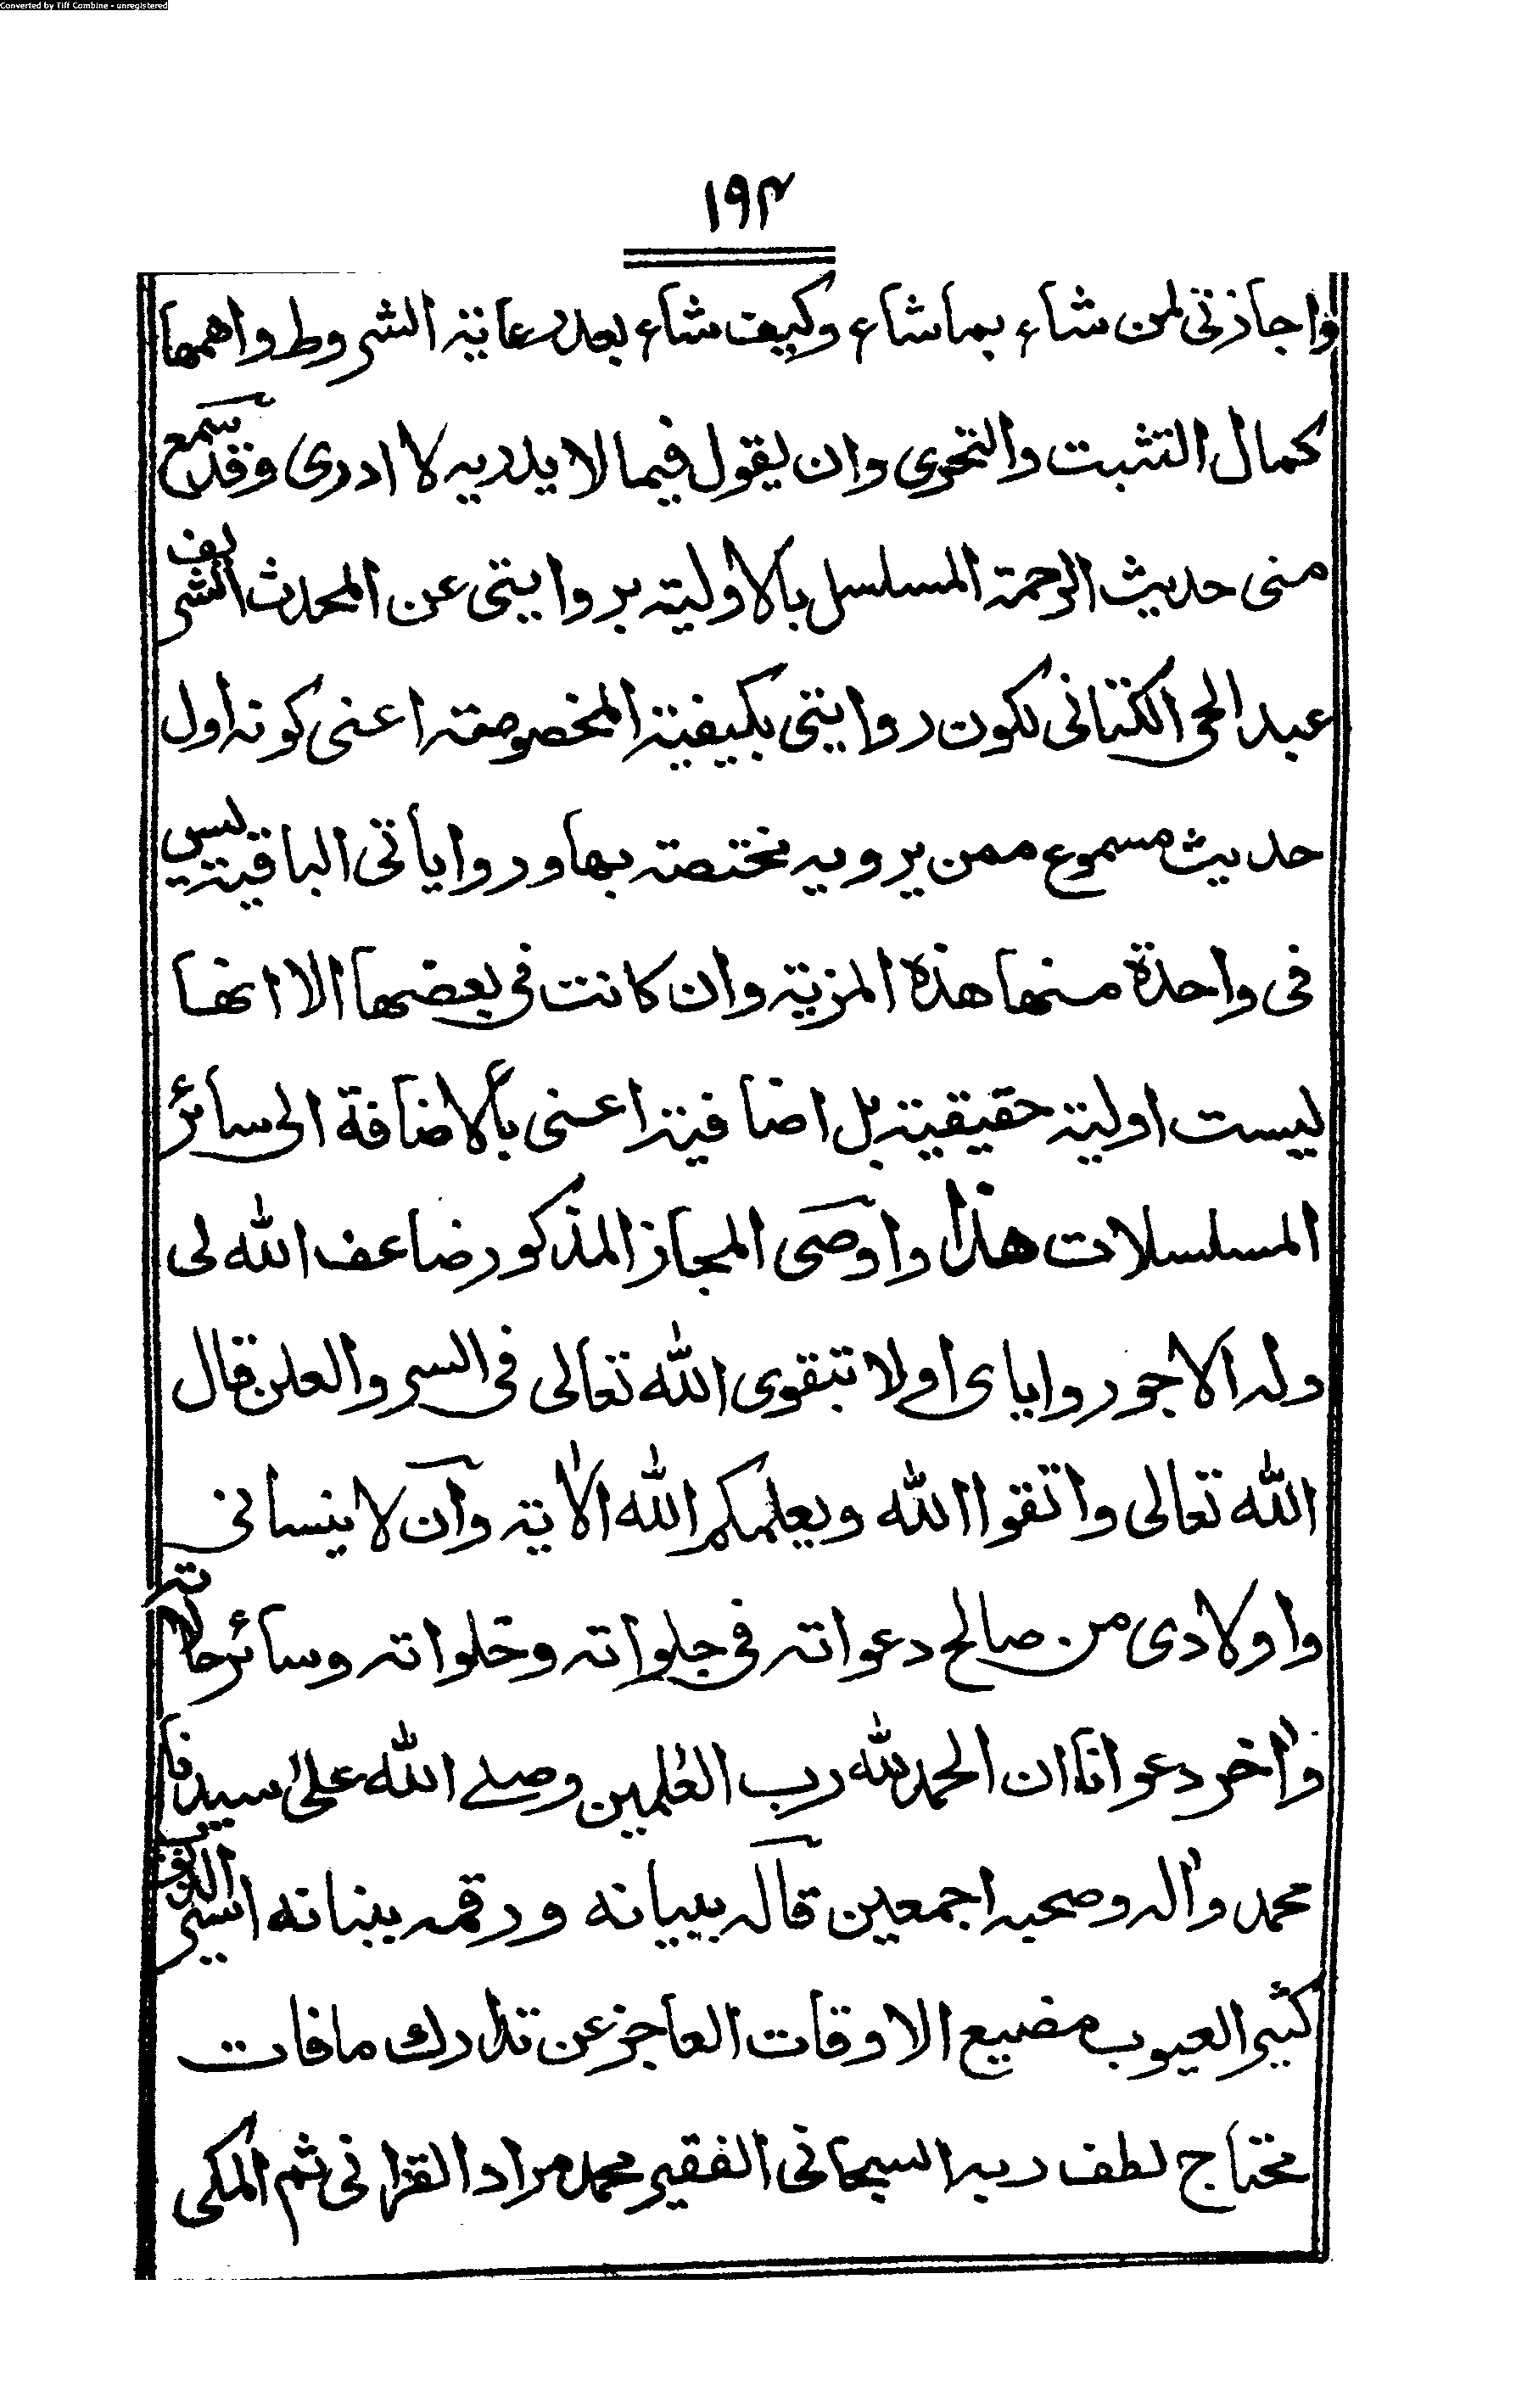 Converted by Tiff Combine - unregistered
۱۹۴
واجازتی لمن شاء بماشاء وکیف شاء بعد رعایة الشروط واهمها
کمال التثبت والتحری وان یقول فیما لا یدریه لا ادری وقد سمع
منی حدیث الرحمة المسلسل بالاولیة بروایتی عن المحدث الشریف
عبد الحی الکتانی لکون روایتی بکیفیة المخصوصة اعنی کونه اول
حدیث مسموع ممن یرویه مختصة بها وروایاتی الباقیة لیس
فی واحدة منها هذه المزیة وان کانت فی بعضها الا انها
لیست اولیة حقیقیة بل اضافیة اعنی بالاضافة الی سائر
المسلسلات هذا واوصی المجاز المذکور ضاعف الله لی
وله الاجور وایای اولا بتقوی الله تعالی فی السر والعلن قال
الله تعالی واتقوا الله ویعلمکم الله الاٰیة وان لا ینسانی
واولادی من صالح دعواته فی جلواته وخلواته وسائر حالاته
واٰخر دعوانا ان الحمد لله رب العٰلمین وصلے الله علیٰ سیدنا
محمد واٰله وصحبه اجمعین قاله ببیانه ورقمه ببنانه اسیر الذنوب
کثیر العیوب مضیع الاوقات العاجز عن تدارك ما فات
محتاج لطف ربه السبحانی الفقیر محمد مراد القزانی ثم المکی